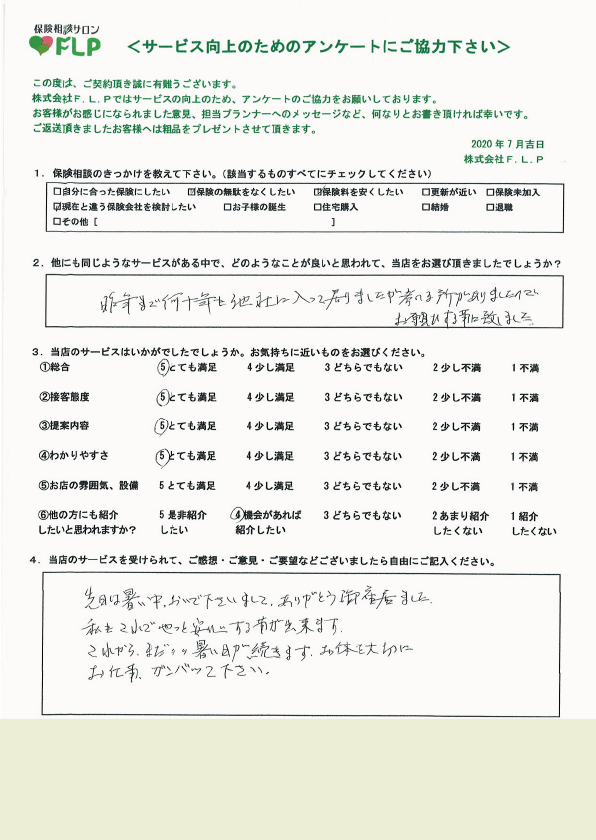 保険相談サロン
FLP
＜サービス向上のためのアンケートにご協力下さい＞
この度は、ご契約頂き誠に有難うございます。
株式会社Ｆ.Ｌ.Ｐではサービスの向上のため、アンケートのご協力をお願いしております。
お客様がお感じになられました意見、担当プランナーへのメッセージなど、何なりとお書き頂ければ幸いです。
ご返送頂きましたお客様へは粗品をプレゼントさせて頂きます。
2020 年 7 月吉日
株式会社Ｆ.Ｌ.Ｐ
１．保険相談のきっかけを教えて下さい。（該当するものすべてにチェックしてください）
□自分に合った保険にしたい ☑保険の無駄をなくしたい ☑保険料を安くしたい □更新が近い □保険未加入
☑現在と違う保険会社を検討したい □お子様の誕生 □住宅購入 □結婚 □退職
□その他［ ］
２．他にも同じようなサービスがある中で、どのようなことが良いと思われて、当店をお選び頂きましたでしょうか？
昨年まで何十年も他社に入って居りましたが考える所がありましたので
お願いする事に致しました
３．当店のサービスはいかがでしたでしょうか。お気持ちに近いものをお選びください。
①総合 5 とても満足 4 少し満足 3 どちらでもない 2 少し不満 1 不満
②接客態度 5 とても満足 4 少し満足 3 どちらでもない 2 少し不満 1 不満
③提案内容 5 とても満足 4 少し満足 3 どちらでもない 2 少し不満 1 不満
④わかりやすさ 5 とても満足 4 少し満足 3 どちらでもない 2 少し不満 1 不満
⑤お店の雰囲気、設備 5 とても満足 4 少し満足 3 どちらでもない 2 少し不満 1 不満
⑥他の方にも紹介 5 是非紹介 4 機会があれば 3 どちらでもない 2 あまり紹介 1 紹介
したいと思われますか？ したい 紹介したい したくない したくない
４．当店のサービスを受けられて、ご感想・ご意見・ご要望などございましたら自由にご記入ください。
先日は暑い中、おいで下さいまして、ありがとう御座居ました。
私もこれでやっと安心する事が出来ます。
これから、まだッッ暑い日が続きます。お体を大切に
お仕事、ガンバッて下さい。